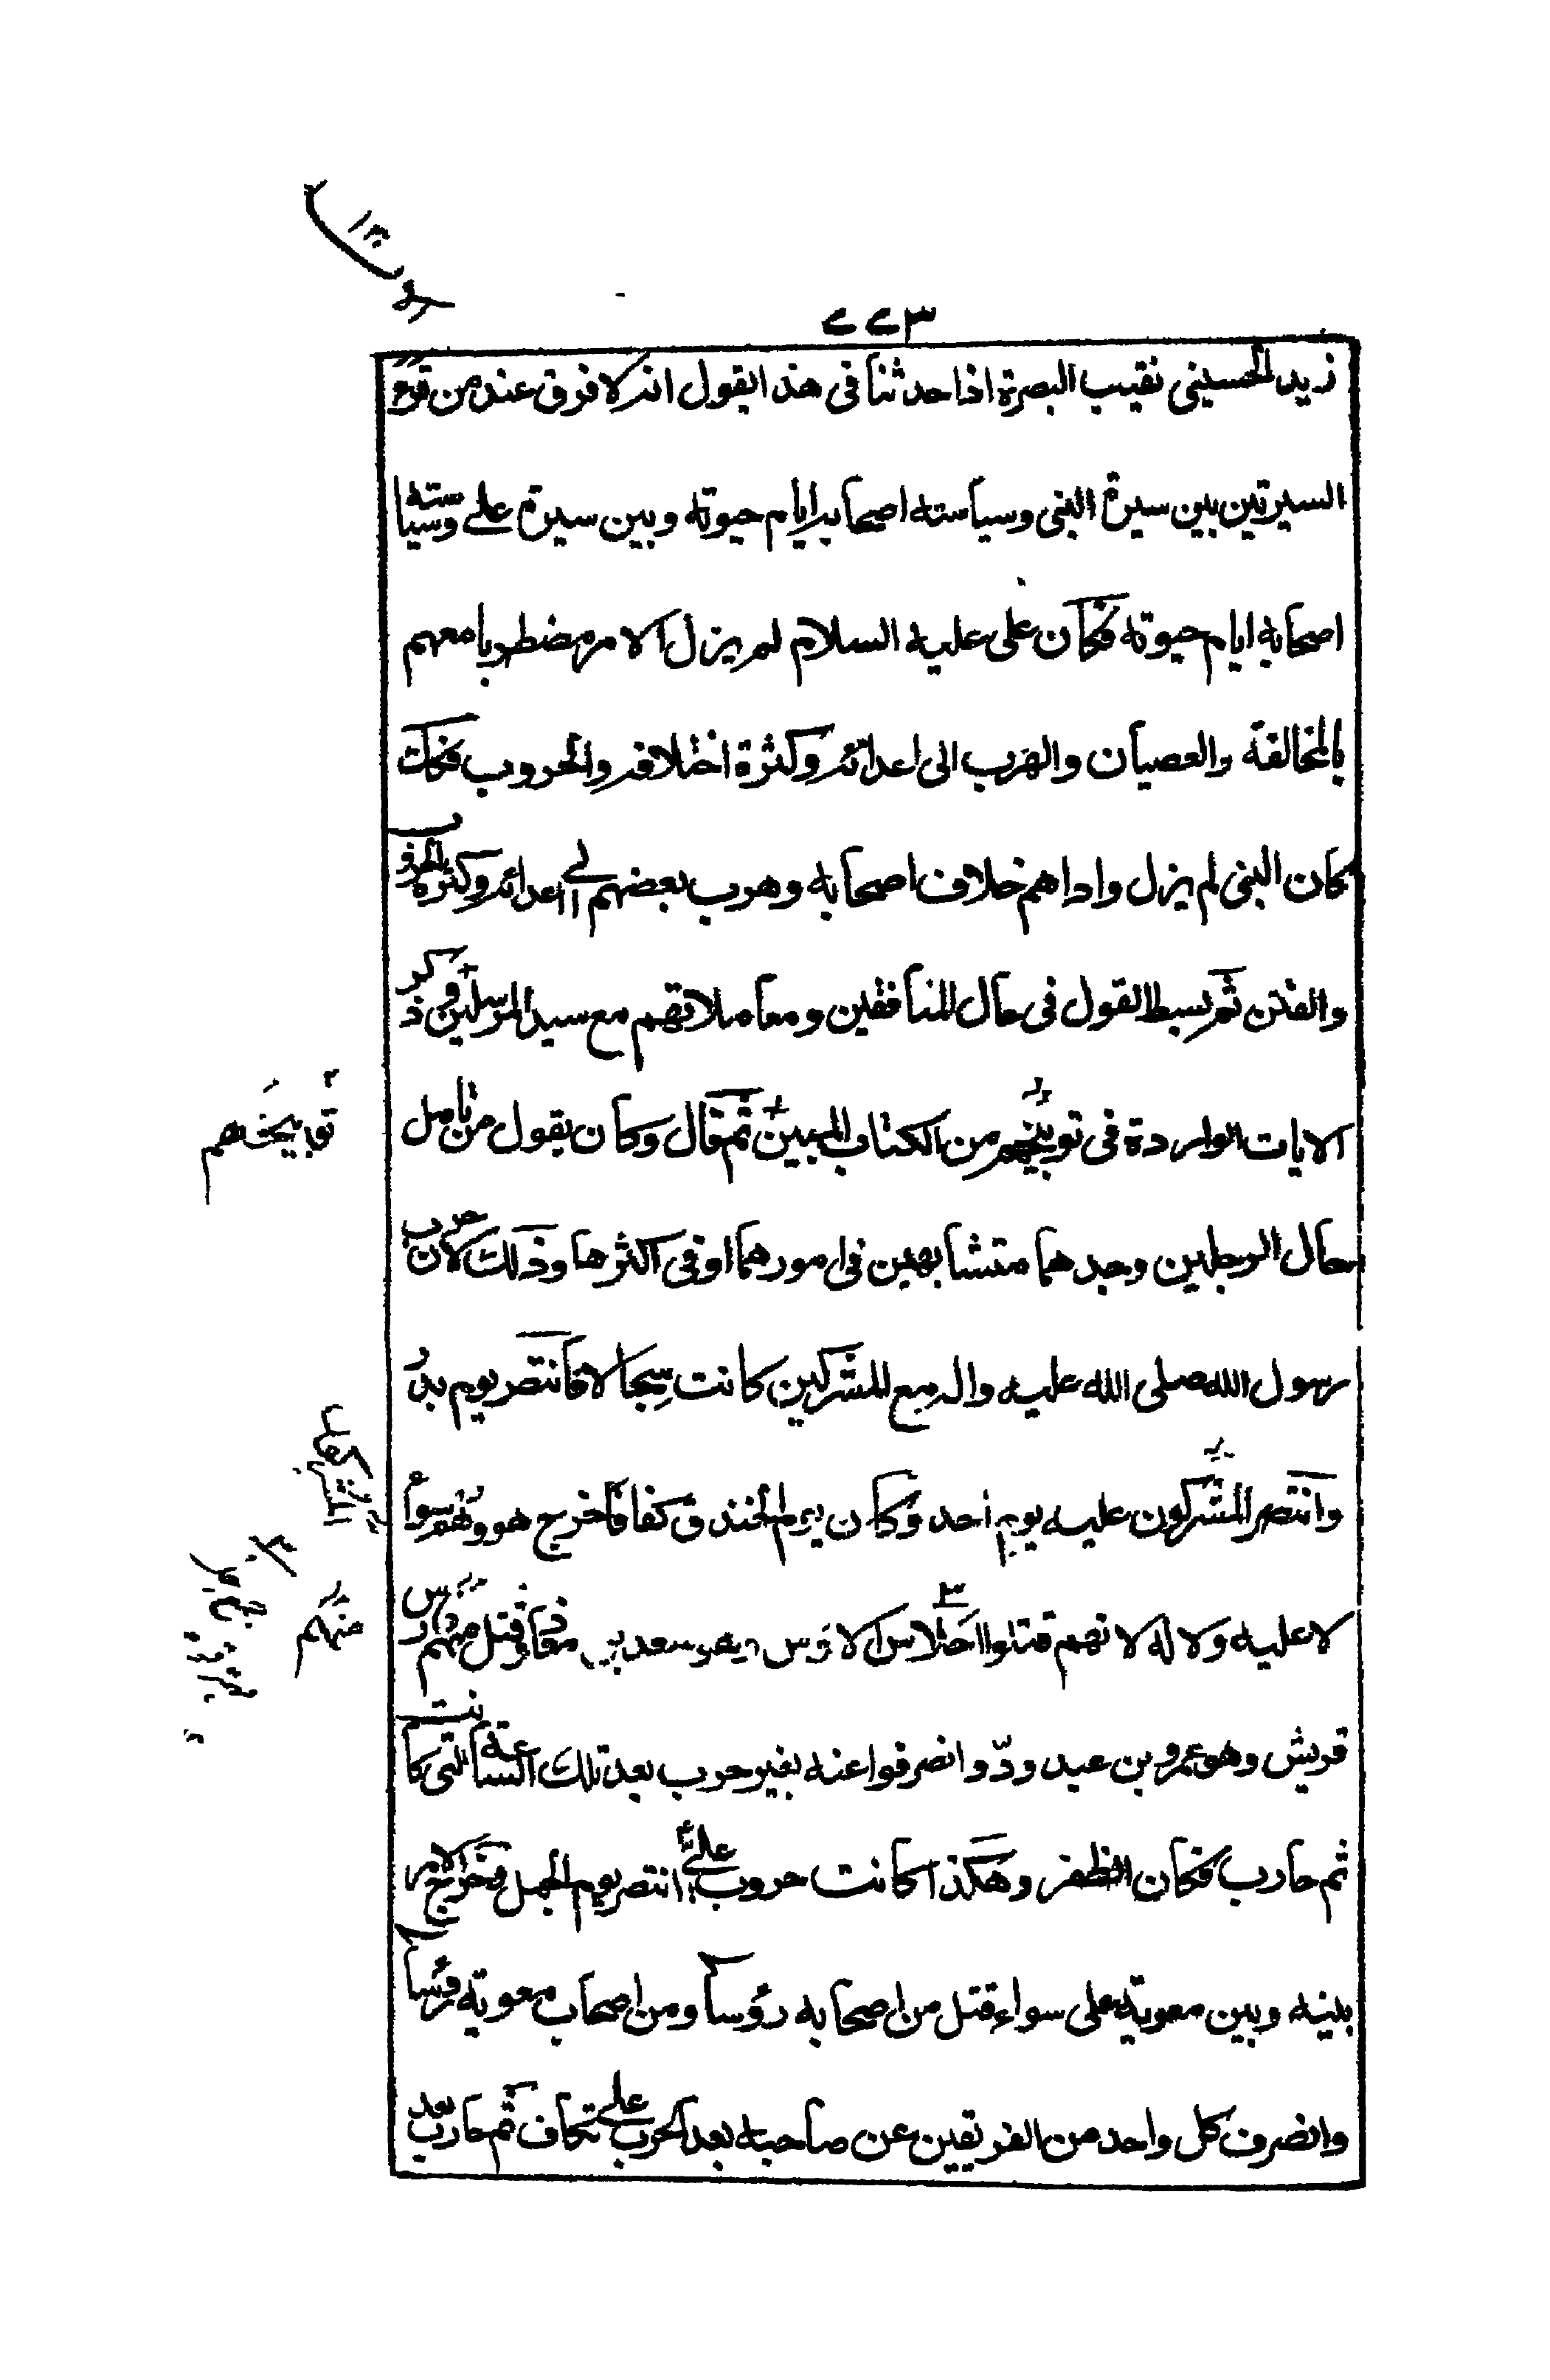 زيد الحسيني نقيب البصرة اذا حدثنا في هذا القول انه لا فرق عند من قرء
السيرتين بين سيرة النبي وسياسته اصحابه ايام حيوته وبين سيرة علي وسياسته
اصحابه ايام حيوته فكان علي عليه السلام لم يزل الامر مضطربا معهم
بالمخالفة والعصيان والهرب الى اعدائه وكثرة اختلافه والحروب فكك
كان النبي لم يزل واداهم خلاف اصحابه وهرب بعضهم الى اعدائه وكثرة الحروب
والفتن ثم بسط القول في حال المنافقين ومعاملاتهم مع سيد المرسلين وذكر
الايات الواردة في توبيخهم من الكتاب المبين ثم قال وكان يقول من تامل
توبيخهم
حال الرجلين وجدهما متشابهين في امورهما او في اكثرها وذلك لان حرب
رسول الله صلى الله عليه واله مع المشركين كانت سجالا فانتصر يوم بدر
وانتصر المشركون عليه يوم احد وكان يوم الخندق كفافا خرج هو وهم سواء
لا عليه ولا له لانهم قتلوا الاوس سعد بن معاذ وقتل منهم فارس
منهم
قريش وهو عمرو بن عبد ودّ وانصرفوا عنه بغير حرب بعد تلك الساعة التي كانت
ثم حارب فكان الظفر وهكذا كانت حروب علي انتصر يوم الجمل وخرج الامر
بينه وبين معوية على سواء قتل من اصحابه رؤسا ومن اصحاب معوية رؤسا
وانصرف كل واحد من الفريقين عن صاحبه بعد الحرب على تكاف ثم حارب بعد